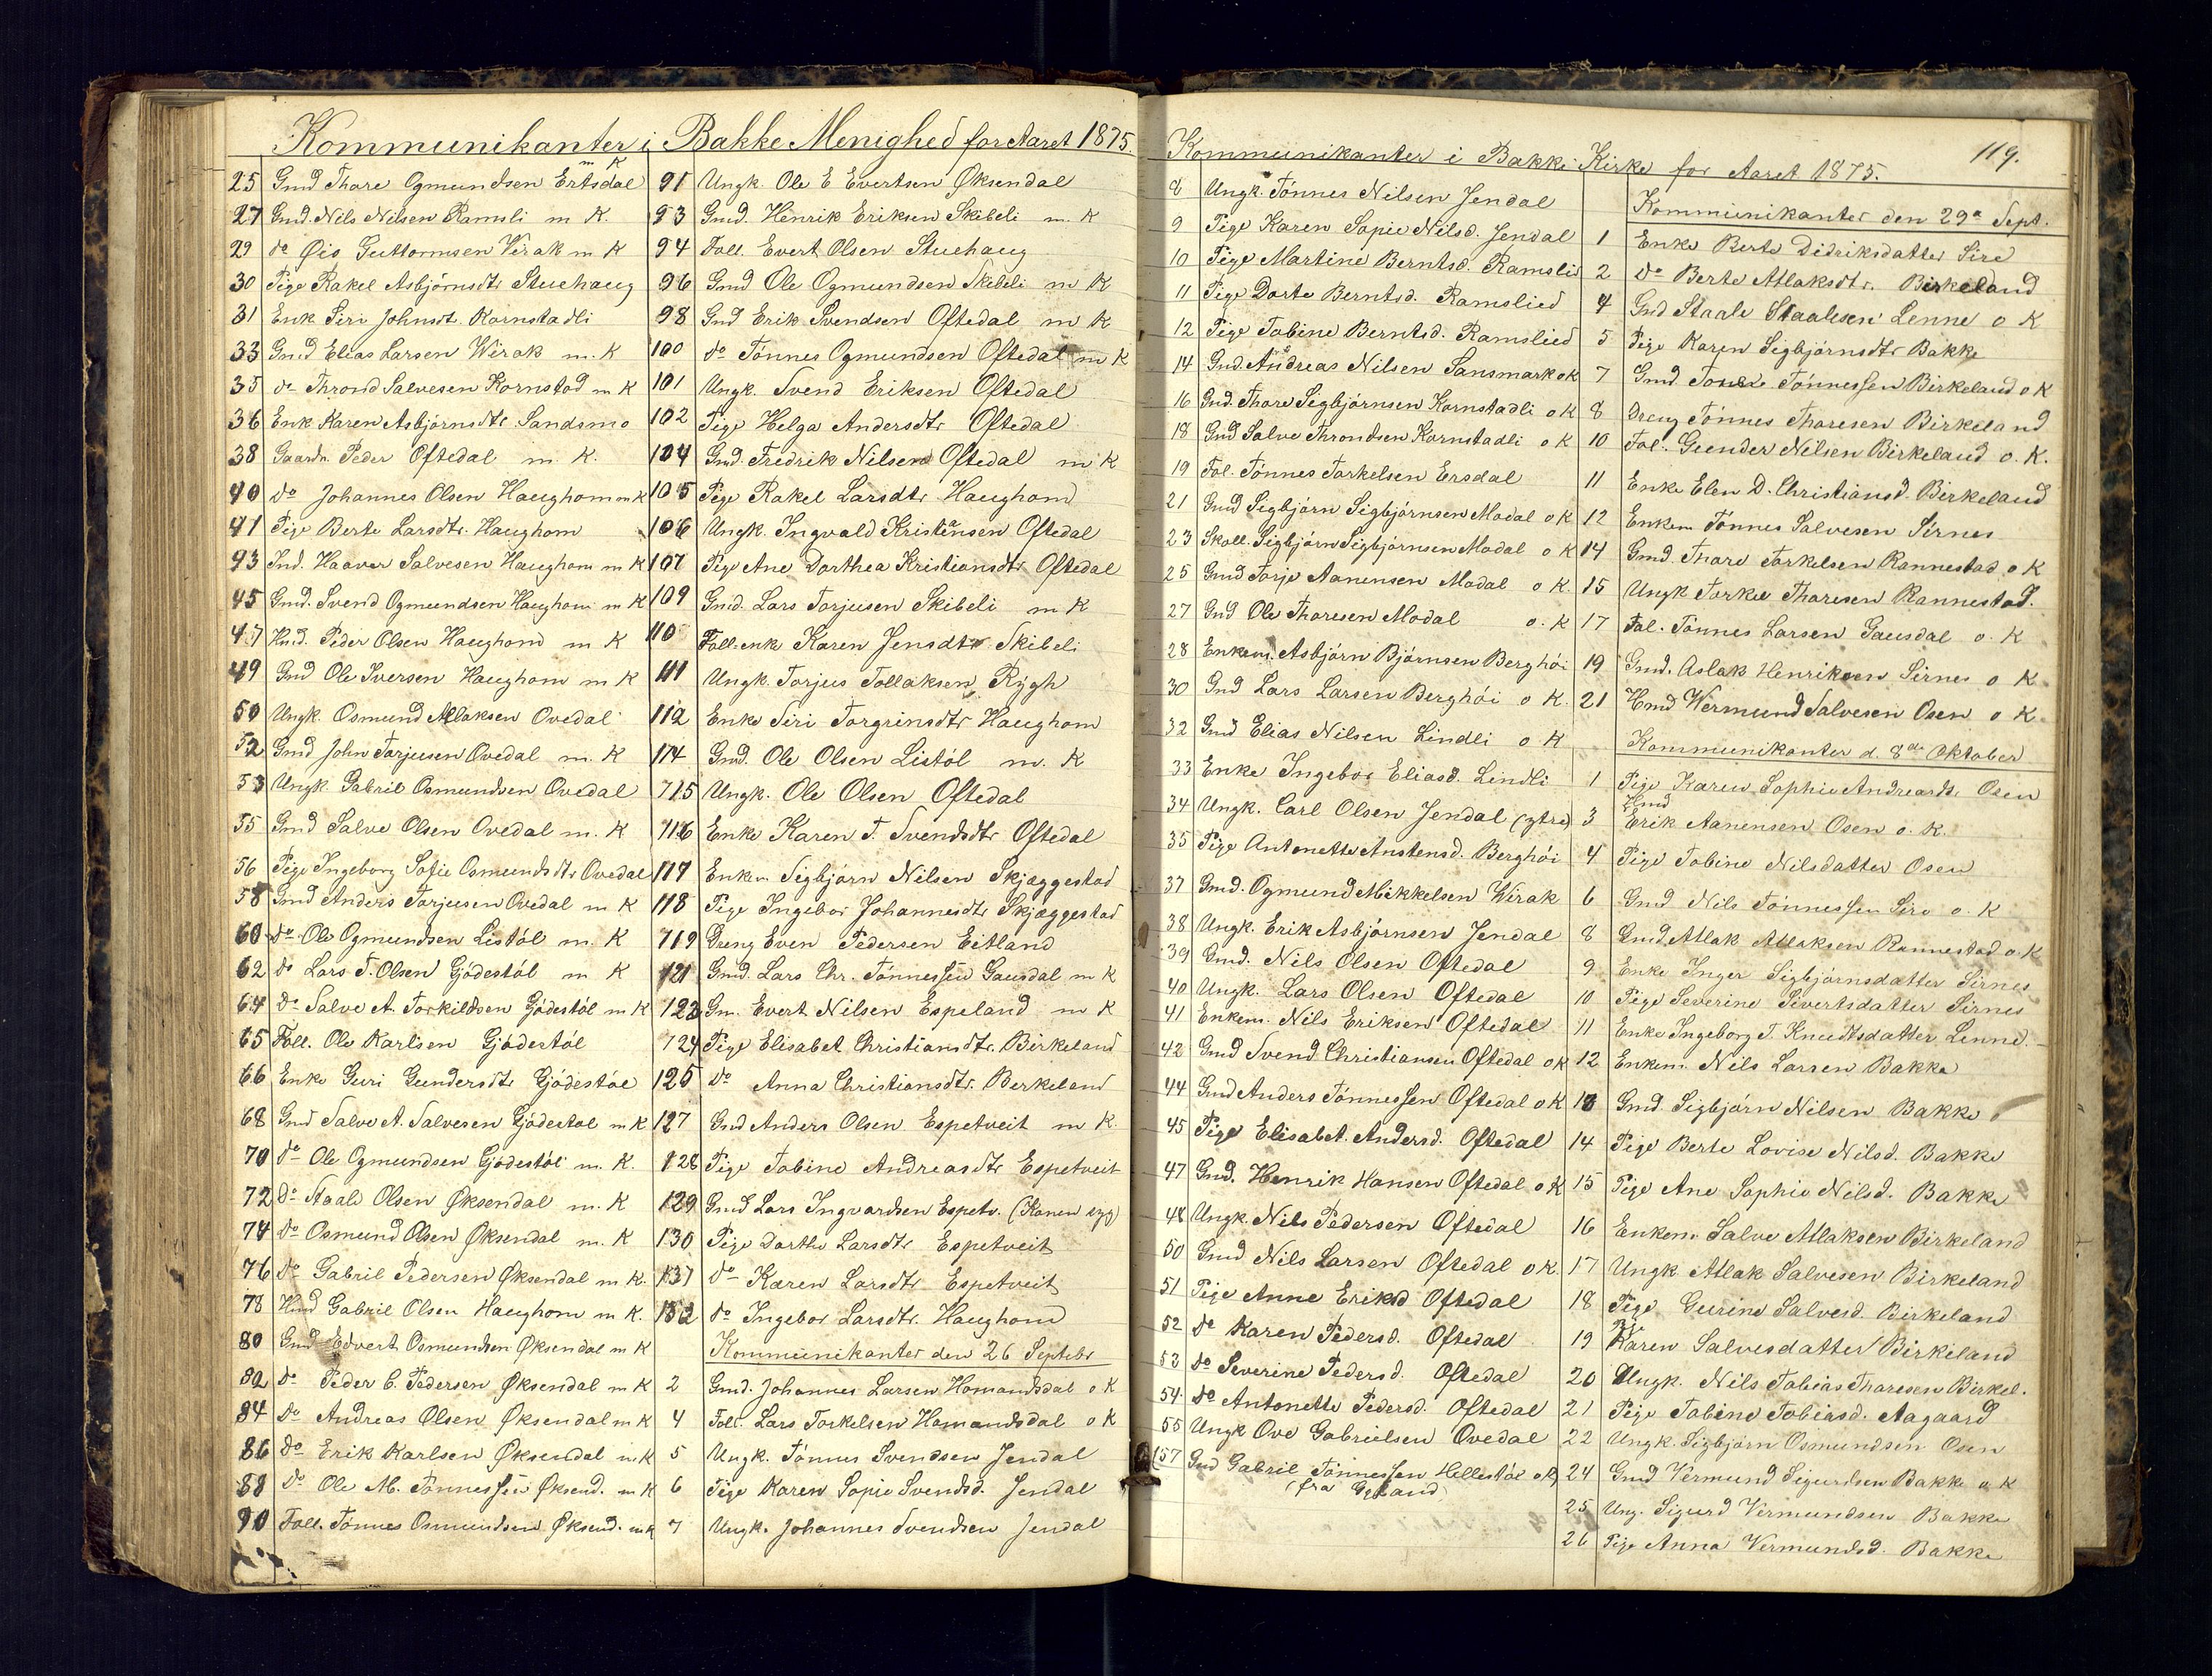 Kommunikanter i Bakke Menighed for Aaret 1875.
m K
25 Gmd Thore Ogmundsen Ertsdal
27 Gmd. Nils Nilsen Ramsli m K.
29 do Øis Guttormsen Wirak m K
30 Pige Rakel Asbjörnsdtr Stuehaug
31 Enk Siri Johnsdt. Kornstadli
33 Gmd Elias Larsen Wirak m. K
35 do Thrond Salvesen Kornstad m K
36 Enk Karen Asbjörnsdtr Sandsmo
38 Gaardm Peder Oftedal m. K.
40 do Johannes Olsen Haughom m K
41 Pige Berte Larsdtr. Haughom
43 Ind. Haaver Salvesen Haughom m K
45 Gmd. Svend Ogmundsen Haughom m K
47 Hmd. Peder Olsen Haughom m K
49 Gmd Ole Iversen Haughom m K
50 Ungk. Osmund Atlaksen Ovedal
52 Gmd John Torjusen Ovedal m. K
53 Ungk Gabriel Osmundsen Ovedal
55 Gmd Salve Olsen Ovedal m. K
56 Pige Ingeborg Sofie Osmundsdtr Ovedal
58 Gmd Anders Torjusen Ovedal m K
60 do Ole Ogmundsen Listöl m. K
62 do Lars T. Olsen Gjödestöl m K
64 do Salve A. Torkildsen Gjödestöl m K
65 Foll. Ole Karlsen Gjödestöl
66 Enke Guri Gundersdtr Gjödestöl
68 Gmd Salve A. Salvesen Gjödestöl m K
70 do Ole Ogmundsen Gjödestöl m. K.
72 do Staale Olsen Øksendal m. K
74 do Osmund Olsen Øksendal m. K
76 do Gabril Pedersen Øksendal m K.
78 Hmd Gabril Olsen Haughom m K.
80 Gmd Edvert Osmundsen Øksendal m K
82 do Peder C. Pedersen Øksendal m K
84 do Andreas Olsen Øksendal m K
86 do Erik Karlsen Øksendal m K
88 do Ole M. Tönnessen Øksend. m K
90 Foll. Tönnes Osmundsen Øksend. m K
91 Ungk. Ole E Evertsen Øksendal
93 Gmd. Henrik Eriksen Skibeli m. K
94 Foll. Evert Olsen Stuehaug
96 Gmd Ole Ogmundsen Skibeli m K
98 Gmd Erik Svendsen Oftedal m K
100 do Tönnes Ogmundsen Oftedal m K
101 Ungk. Svend Eriksen Oftedal
102 Pige Helga Andersdtr Oftedal
104 Gmd. Fredrik Nilsen Oftedal m K
105 Pige Rakel Larsdtr Haughom
106 Ungk. Ingvald Kristensen Oftedal
107 Pige Ane Dorthea Kristiansdtr Oftedal
109 Gmd. Lars Torjusen Skibeli m K
110 Foll.enk Karen Jensdtr Skibeli
111 Ungk. Torjus Tollaksen Rygh
112 Enke Siri Torgrimsdtr Haughom
114 Gmd. Ole Olsen Listöl m. K
115 Ungk. Ole Olsen Oftedal
116 Enke Karen T. Svendsdtr Oftedal
117 Enkem Sigbjörn Nilsen Skjæggestad
118 Pige Ingebor Johannesdtr Skjæggestad
119 Dreng Even Pedersen Eitland
121 Gmd. Lars Chr. Tönnessen Gausdal m K
123 Gm. Evert Nilsen Espeland m K
124 Pige Elisabet Christiansdtr. Birkeland
125 do Anna Christiansdtr. Berkeland
127 Gmd Anders Olsen Espetveit m K.
128 Pige Tobine Andreasdtr Espetveit
129 Gmd Lars Ingvardsen Espetv. (Konen syg)
130 Pige Dorthe Larsdtr Espetveit
131 do Karen Larsdtr Espetveit
132 do Ingebor Larsdtr. Haughom
Kommunikanter den 26 Septebr
2 Gmd. Johannes Larsen Homandsdal o K
4 Foll. Lars Torkelsen Homandsdal o K
5 Ungk. Tönnes Svendsen Jendal
6 Pige Karen Sopie Svendsd. Jendal
7 Ungk. Johannes Svendsen Jendal
Kommunikanter i Bakke Kirke for Aaret 1875.
119.
8 Ungk. Tönnes Nilsen Jendal
9 Pige Karen Sopie Nilsd. Jendal
10 Pige Martine Berntsd. Ramslie
11 Pige Dorte Berntsd. Ramslied
12 Pige Tobine Berntsd. Ramslied
14 Gmd. Andreas Nilsen Sansmark o K
16 Gmd. Thore Sigbjörnsen Kornstadli o K
18 Gmd Salve Throndsen Kornstadli o K
19 Fol. Tönnes Torkelsen Ersdal
21 Gmd Sigbjörn Sigbjörnsen Modal o K
23 Skoll. Sigbjörn Sigbjörnsen Modal o K
25 Gmd Torje Aanensen Modal o K.
27 Gmd Ole Thoresen Modal o. K
28 Enkem. Asbjörn Björnsen Berghöi
30 Gmd Lars Larsen Berghöi o K.
32 Gmd Elias Nilsen Lindli o K
33 Enke Ingebor Eliasd. Lindli
34 Ungk. Carl Olsen Jendal (ytre)
35 Pige Antonette Anstensd. Berghöi
37 Gmd. Ogmund Mikkelsen Wirak
38 Ungk. Erik Asbjörnsen Jendal
39 Gmd. Nils Olsen Oftedal
40 Ungk. Lars Olsen Oftedal
41 Enkem. Nils Eriksen Oftedal
42 Gmd Svend Christiansen Oftedal o K
44 Gmd Anders Tönnessen Oftedal o K
45 Pige Elisabet. Andersd. Oftedal
47 Gmd. Henrik Hansen Oftedal o K
48 Ungk. Nils Pedersen Oftedal
50 Gmd Nils Larsen Oftedal o K.
51 Pige Anne Eriksd Oftedal
52 do Karen Pedersd. Oftedal
53 do Severine Pedersd. Oftedal
54 do Antonette Pedersd. Oftedal
55 Ungk Ove Gabrielsen Ovedal
(57 Gmd Gabril Tönnessen Hellestöl o K)
(fra Gyland)
Kommunikanter den 29de Sept.
1 Enke Berte Didriksdatter Sire
2 do Berte Atlaksdtr. Birkeland
4 Gmd Staale Staalesen Lenne o K
5 Pige Karen Sigbjörnsdtr Bakke
7 Gmd. Tönnessen Birkeland o K
8 Dreng Tönnes Thoresen Birkeland
10 Fol. Gunder Nilsen Birkeland o. K.
11 Enke Elen D. Christiansd. Birkeland
12 Enkem Tönnes Salvesen Sirnes
14 Gmd. Thore Torkelsen Rannestad o K
15 Ungk Torkel Thoresen Rannestad.
17 Fol. Tönnes Larsen Gausdal o. K
19 Gmd. Aslak Henriksen Sirnes o K
21 Hmd Wermund Salvesen Osen o K
Kommunikanter d. 8de Oktober
1 Pige Karen Sophie Andreasdt. Osen
Hmd
3 Erik Aanensen Osen o. K.
4 Pige Tobine Nilsdatter Osen
6 Gmd Nils Tönnessen Sire o. K
8 Gmd. Atlak Atlaksen Rannestad o K
9 Enke Inger Sigbjörnsdatter Sirnes
10 Pige Severine Sivertsdatter Sirnes
11 Enke Ingeborg T. Knudtsdatter Lenne.
12 Enkem. Nils Larsen Bakke
13 Gmd. Sigbjörn Nilsen Bakke o
14 Pige Berte Lovise Nilsd. Bakke
15 Pige Ane Sophie Nilsd. Bakke
16 Enkem. Salve Atlaksen Birkeland
17 Ungk Atlak Salvesen Birkeland
18 Pige Gurine Salvesd. Birkeland
Pige
19 Karen Salvesdatter Birkeland
20 Ungk. Nils Tobias Thoresen Birkel.
21 Pige Tobine Tobiasd. Aagaard
22 Ungk. Sigbjörn Osmundsen Osen
24 Gmd Vermund Sigurdsen Bakke o K
25 Ung. Sigurd Vermundsen Bakke
26 Pige Anna Vermundsd. Bakke